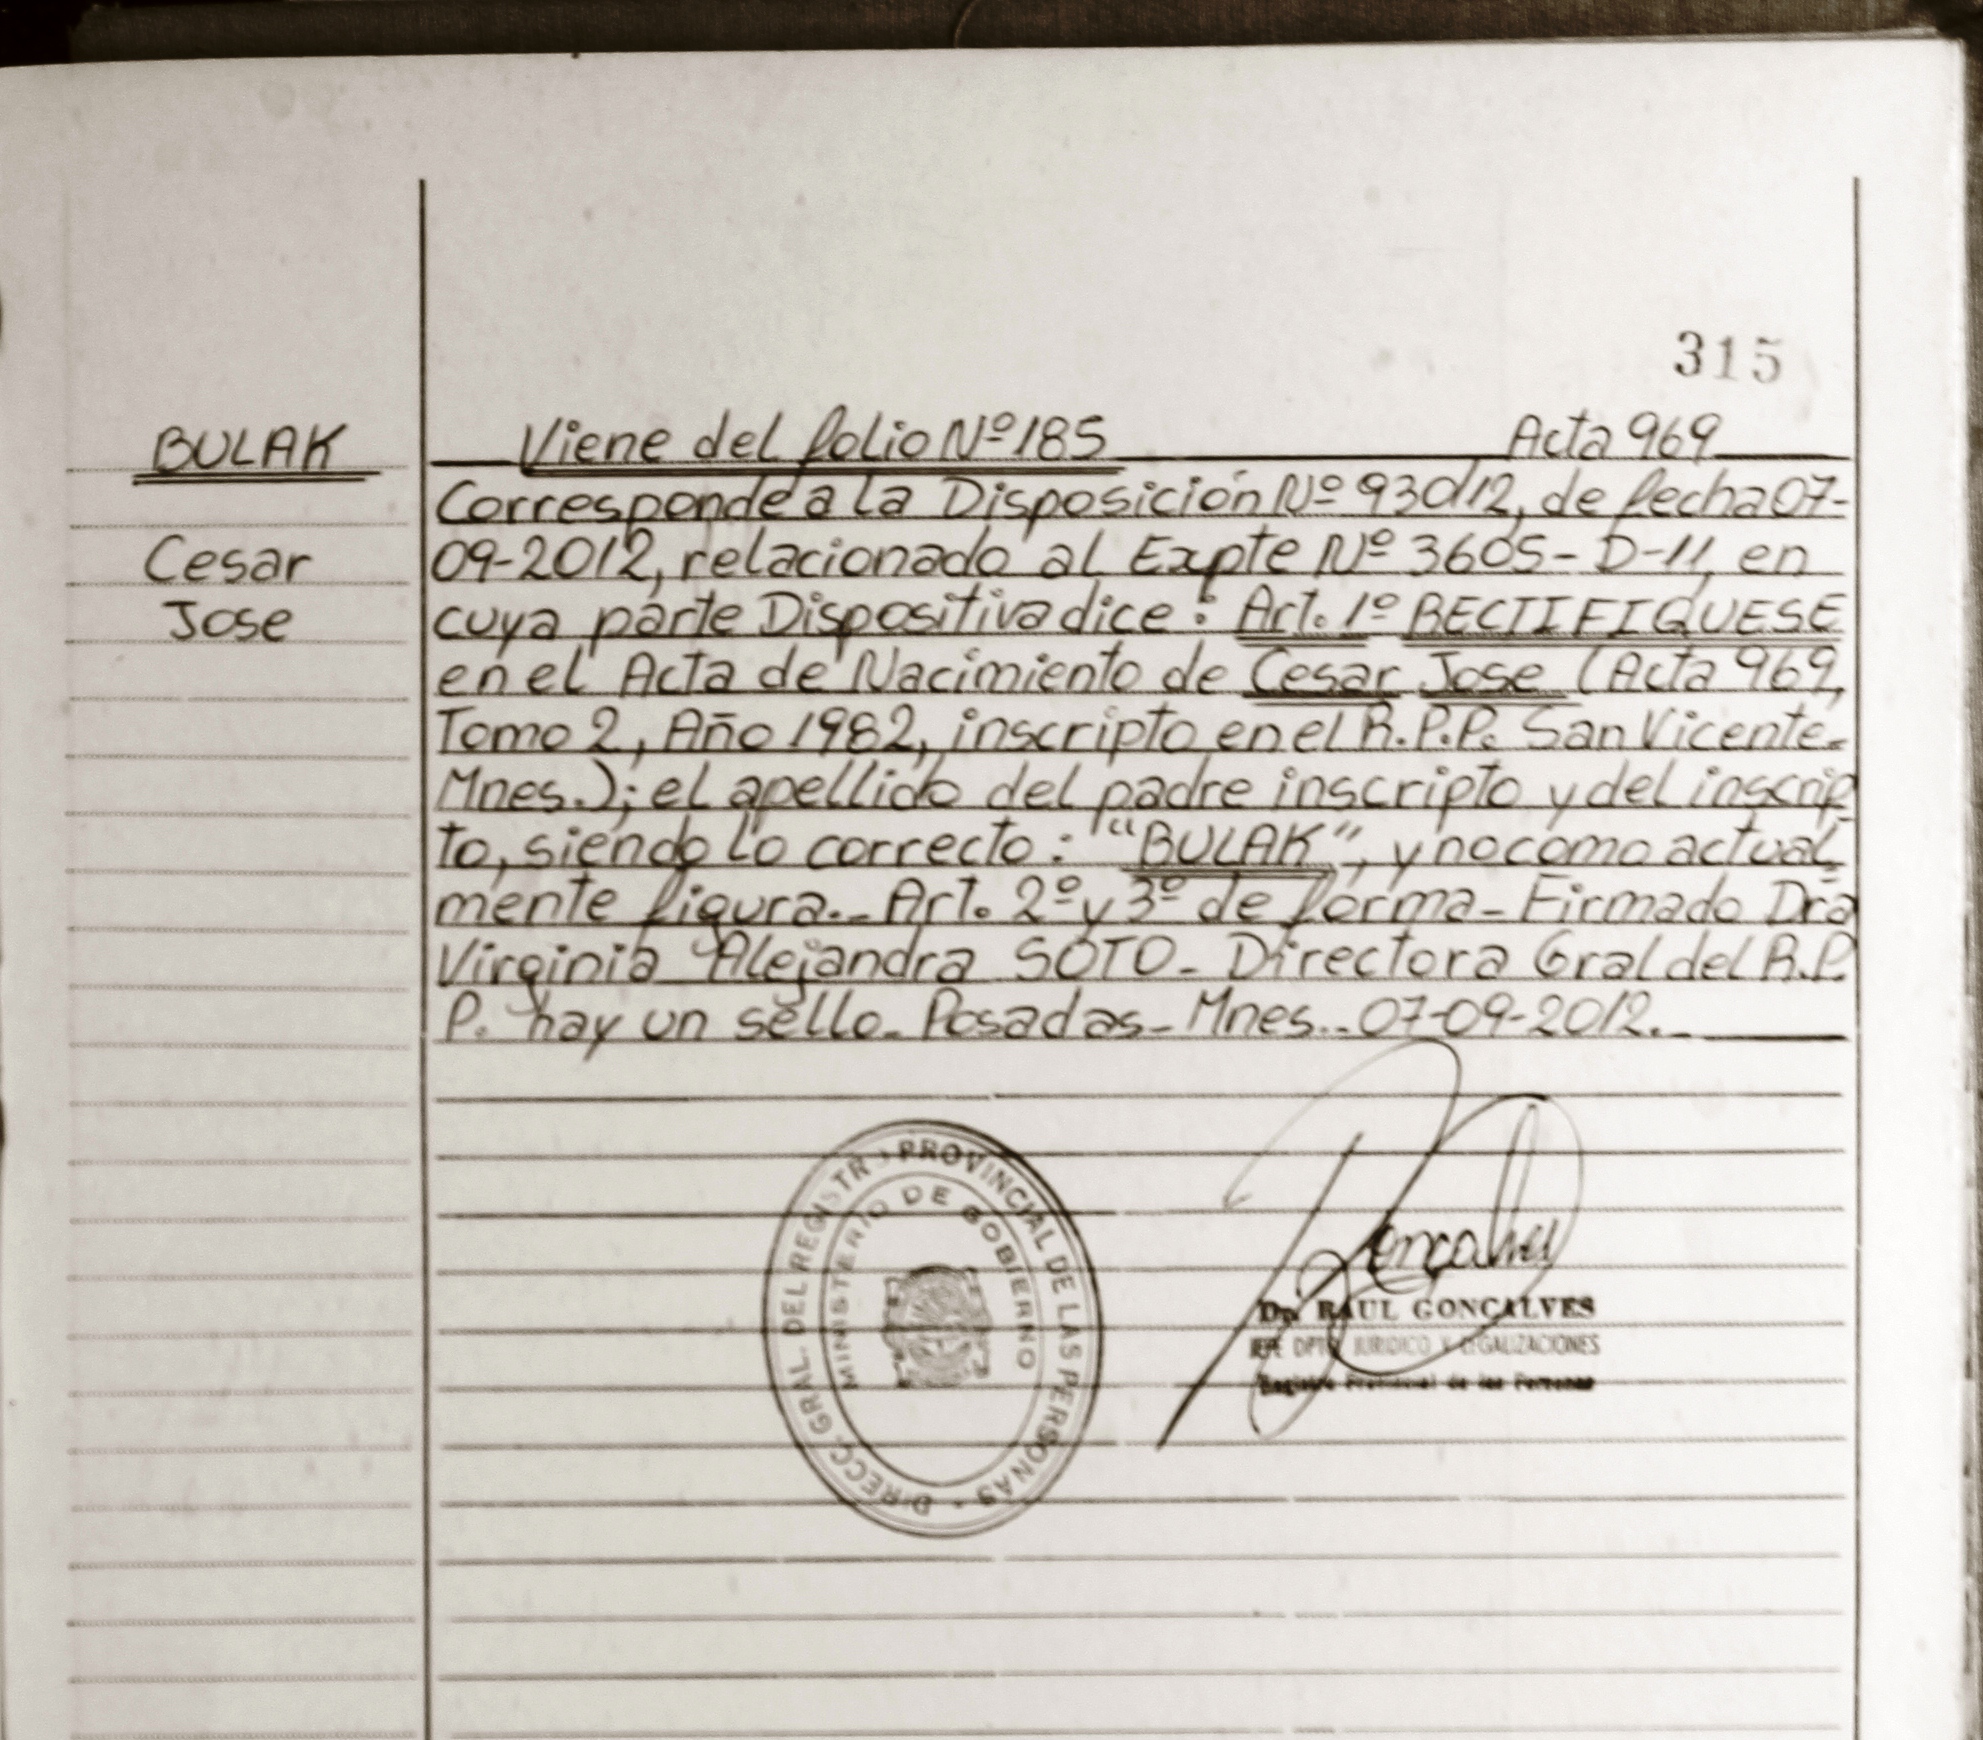 315
BULAK
Cesar
Jose
Viene del folio Nº 185 Acta 969
Corresponde a la Disposición Nº 930/12, de fecha 07-
09-2012, relacionado al Expte Nº 3605-D-11, en
cuya parte Dispositiva dice: Art. 1º RECTIFIQUESE
en el Acta de Nacimiento de Cesar Jose (Acta 969,
Tomo 2, Año 1982, inscripto en el R.P.P. San Vicente-
Mnes.); el apellido del padre inscripto y del inscrip
to, siendo lo correcto: "BULAK", y no como actual
mente figura.- Art. 2º y 3º de forma- Firmado Dra
Virginia Alejandra SOTO- Directora Gral del R.P.
P. hay un sello- Posadas- Mnes.- 07-09-2012.-
DIRECC. GRAL. DEL REGISTRO PROVINCIAL DE LAS PERSONAS -
MINISTERIO DE GOBIERNO
Goncalves
Dr. RAUL GONCALVES
JEFE DPTO. JURIDICO Y LEGALIZACIONES
Registro Provincial de las Personas